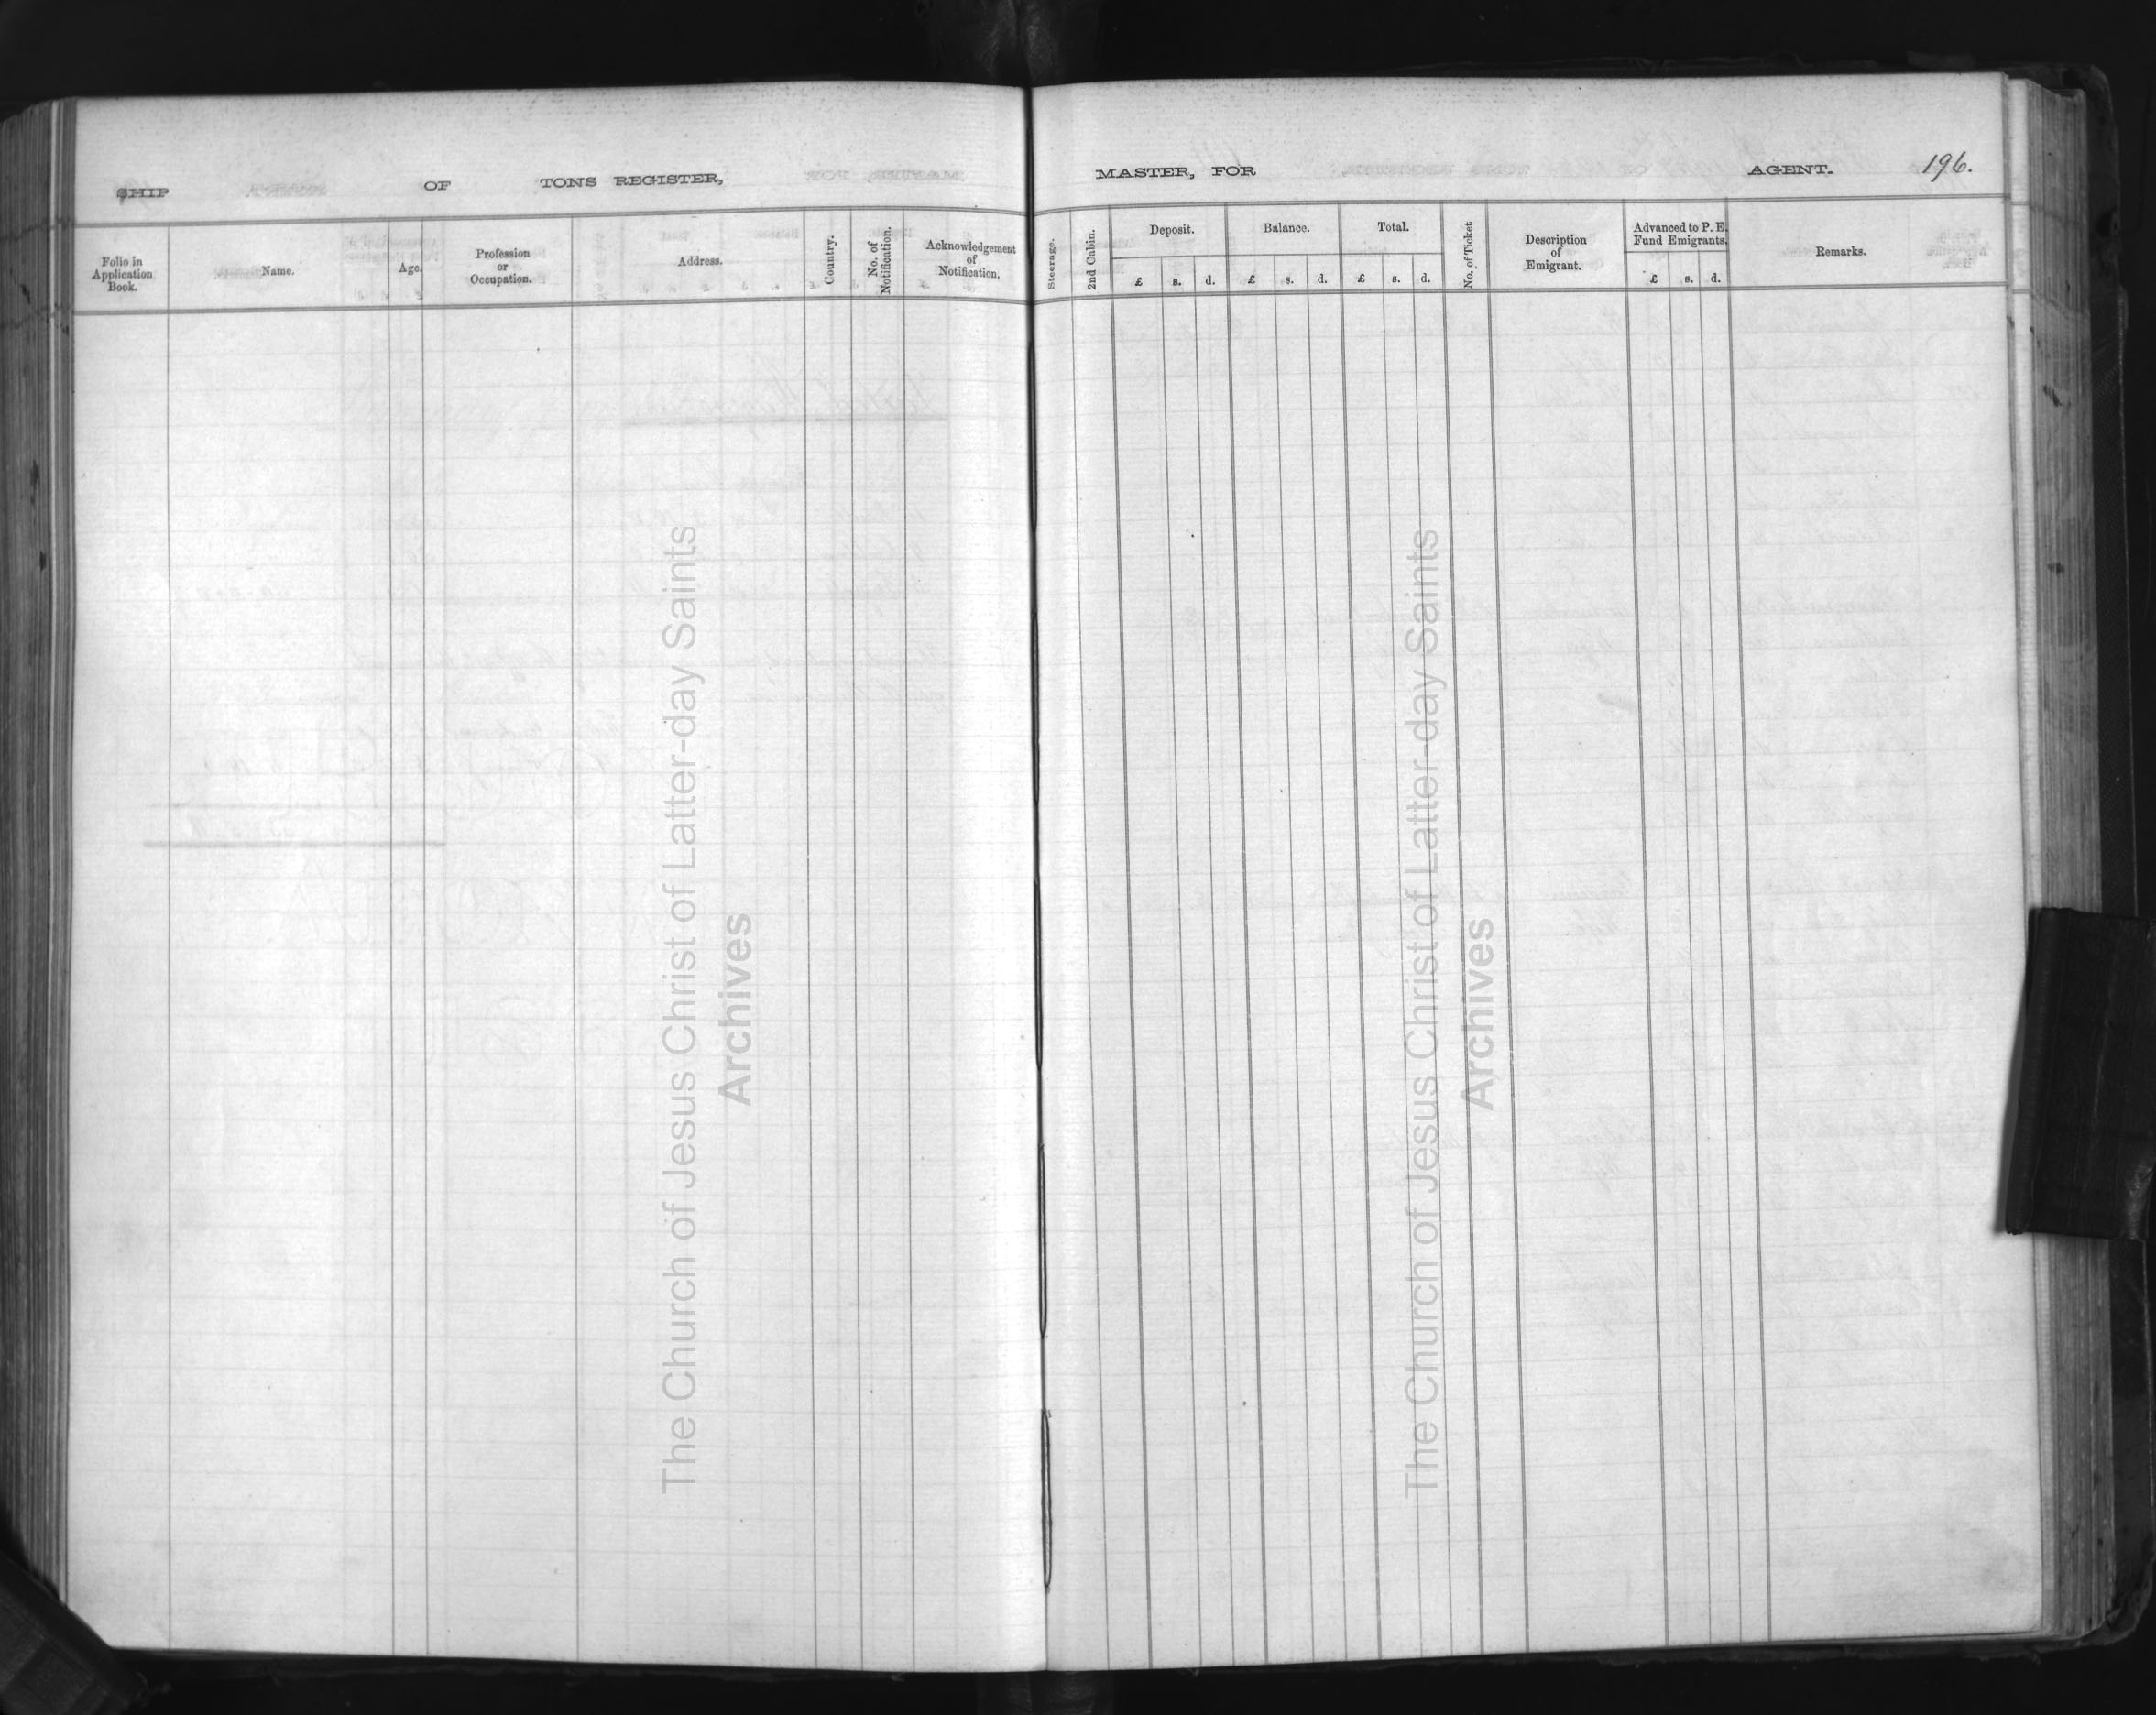 SHIP OF TONS REGISTER, MASTER, FOR AGENT. 196.
Folio in Application Book.
Name.
Age.
Profession or Occupation.
Address.
Country.
No. of Notification.
Acknowledgement of Notification.
Steerage.
2nd Cabin.
Deposit.
£ s. d.
Balance.
£ s. d.
Total.
£ s. d.
No. of Ticket
Description of Emigrant.
Advanced to P. E. Fund Emigrants.
£ s. d.
Remarks.
The Church of Jesus Christ of Latter-day Saints
Archives
The Church of Jesus Christ of Latter-day Saints
Archives